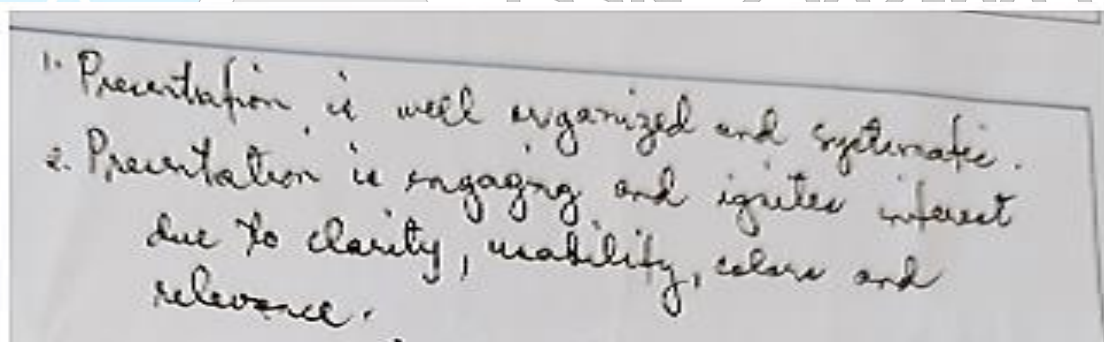 1. Presentation is well organized and systematic.
2. Presentation is engaging and ignites interest
due to clarity, usability, colors and
relevance.